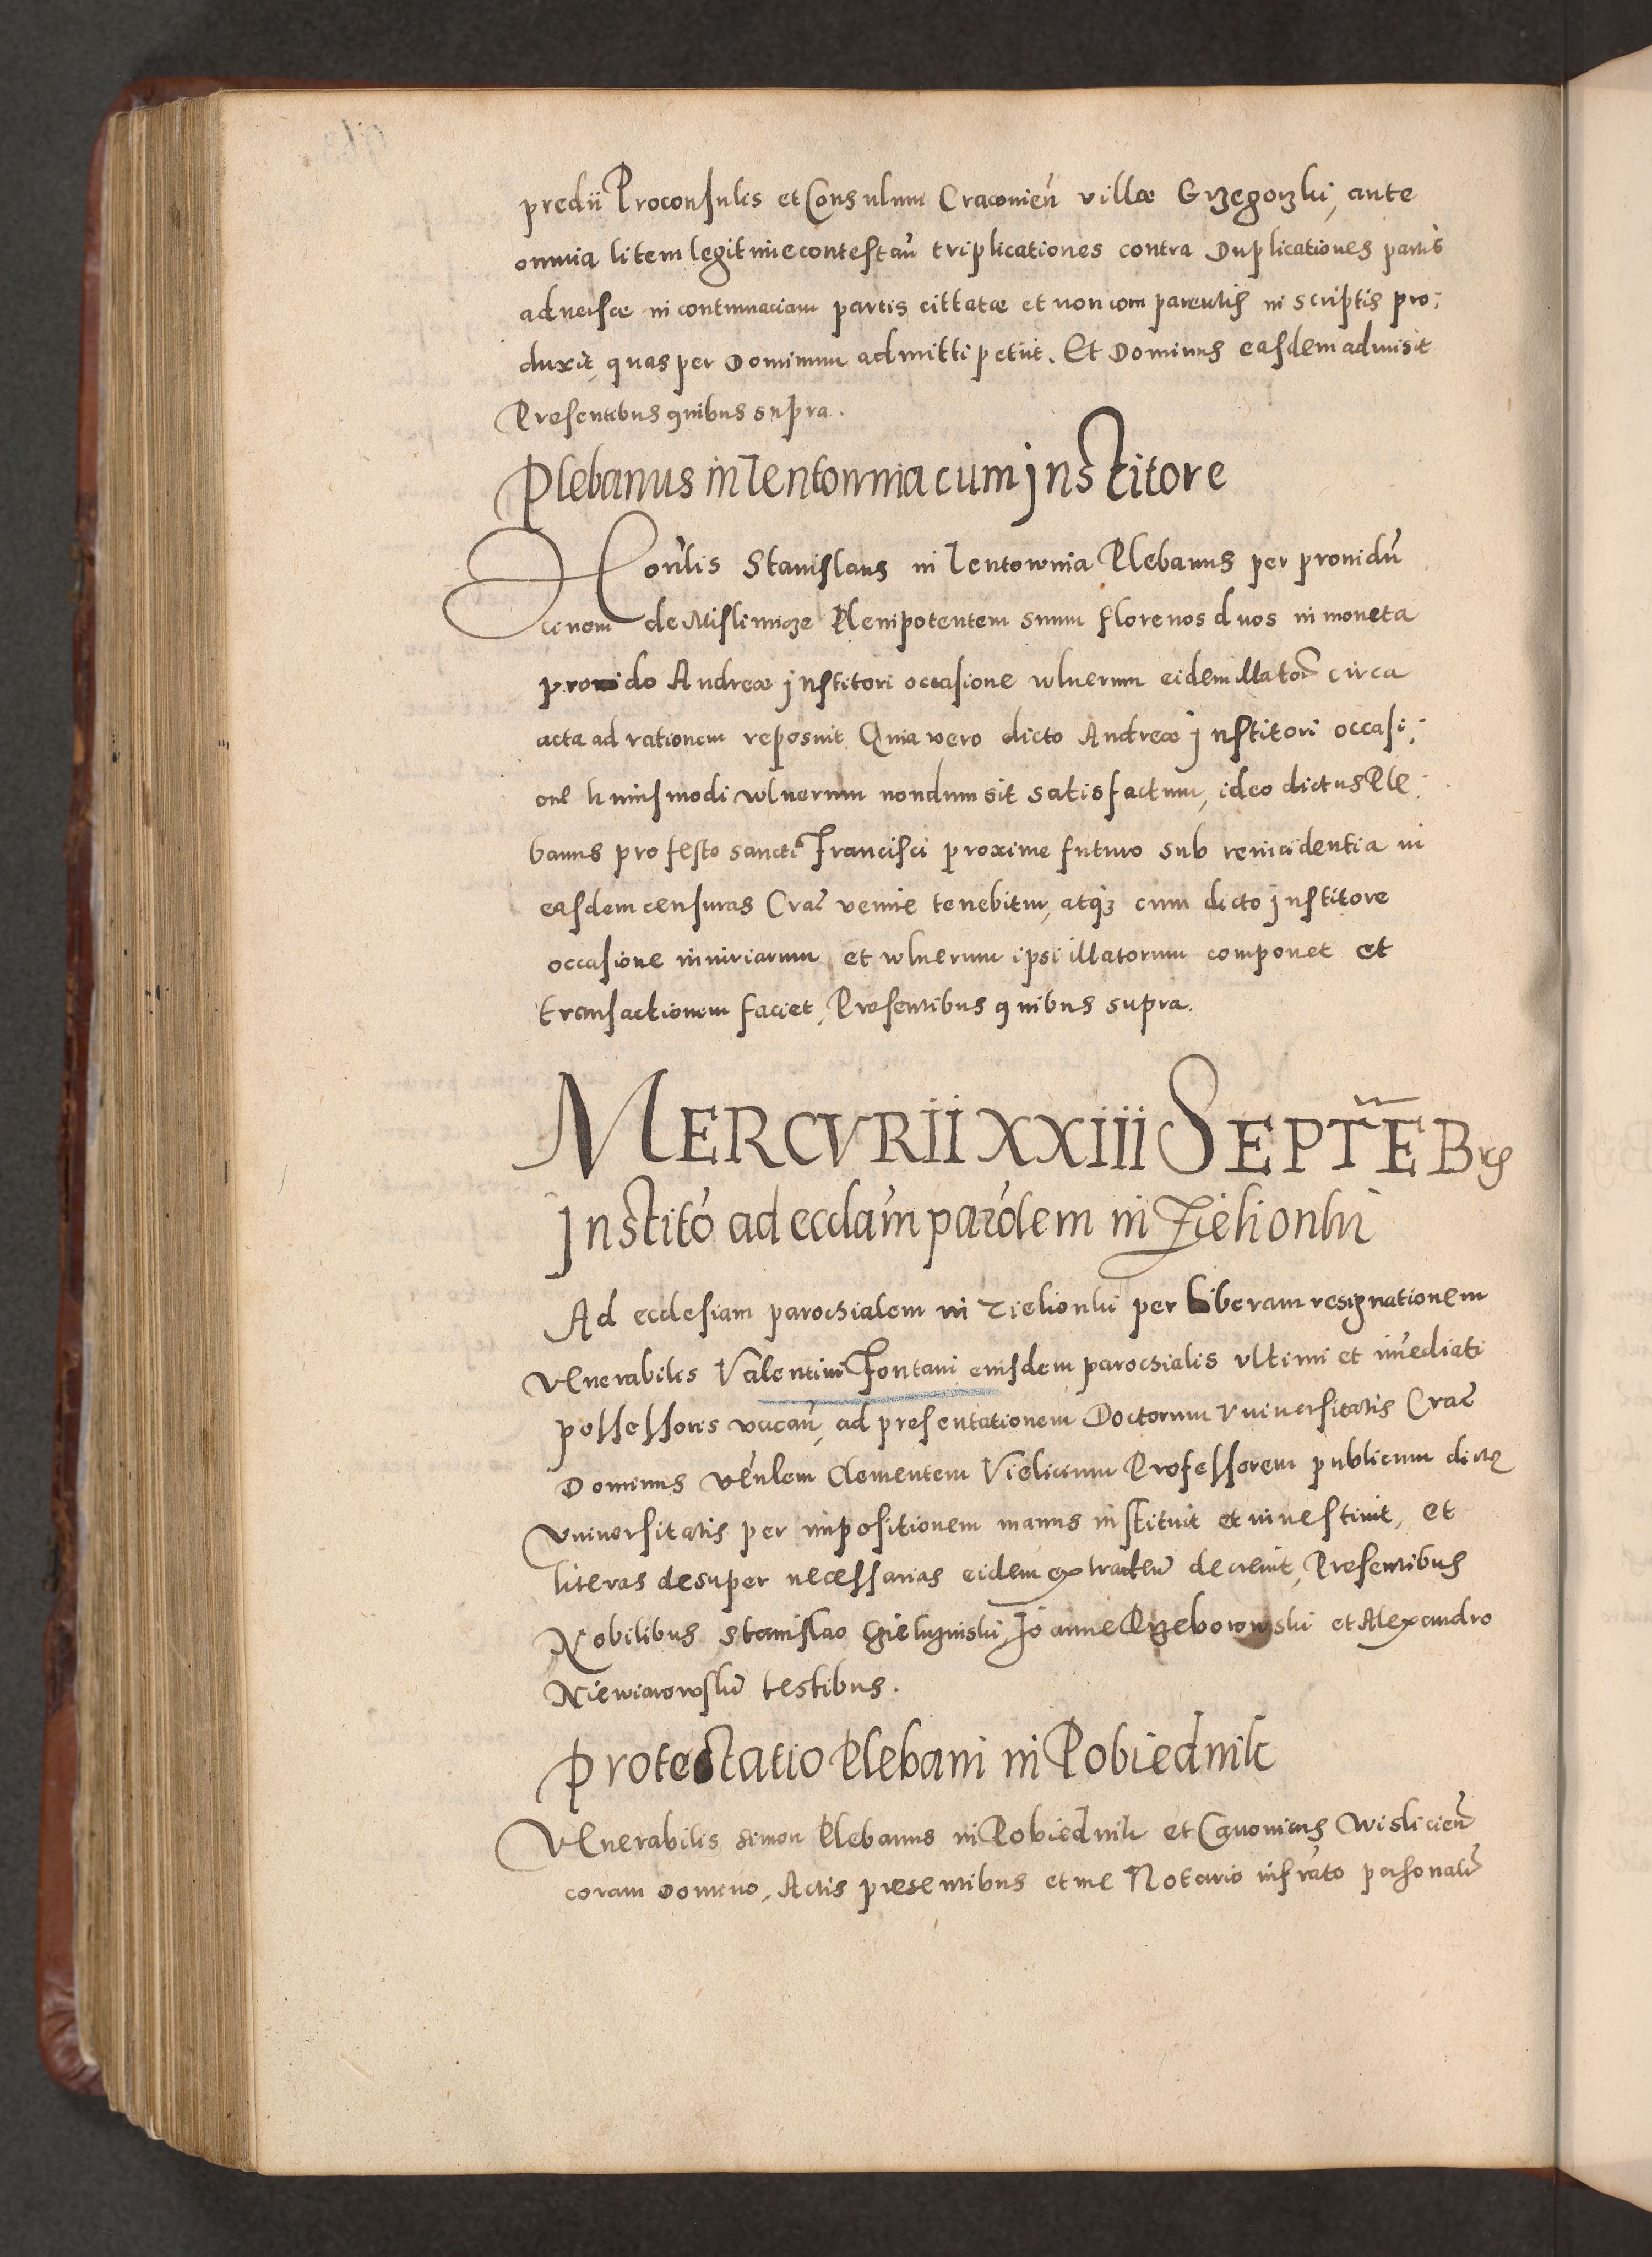 predii Proconsulis et Consulum Cracovień villæ Grzegorzki, ante
omnia litem legitime contestań triplicationes contra Duplicationes partis
adversæ in contumaciam partis cittatæ et non comparentis in scriptis pro:
duxit, quas per Dominum admitti petiit. Et Dominus easdem admisit
Presentibus quibus supra.
Plebanus in Lentownia cum Institore
Honŭlis Stanislaus in Lentownia Plebanus per providū
de Mislimicze Plenipotentem suum florenos duos in moneta
provido Andreæ Institori occasione vulnerum eidem illator circa
acta ad rationem reposuit. Quia vero dicto Andreæ Institori occasi:
one huiusmodi vulnerum nondum sit satisfactum, ideo dictus Ple:
banus pro festo sancti Francisci proxime futuro sub reincidentia in
easdem censuras Crac̄ venire tenebitur, atq3 cum dicto Institore
occasione iniuriarum et vulnerum ipsi illatorum componet et
transactionem faciet, Presentibus quibus supra.
MERCVRII XXIII SEPTEBrs
Institō ad eccłam paro̅lem in Zielionki
Ad ecclesiam parochialem in Zielionki per Liberam resignationem
Venerabilis Valentini Fontani eiusdem parochialis ultimi et im̄ediati
possessoris vacań, ad presentationem Doctorum Universitatis Crac̄
Dominus Veńlem Clementem Vielicium Professorem publicum dictę
Universitatis per impositionem manus instituit et investivit, et
literas desuper necessarias eidem extraden̄ decrevit, Presentibus
Nobilibus Stanislao Gielczinski, Joanne Przeborowski et Alexandro
Niewiarowskī testibus.
Protestatio Plebani in Pobiednik
Venerabilis Simon Plebanus in Pobiednik et Canonicus Wislicień
coram Domino, Actis presentibus et me Notario infrato personalr̄